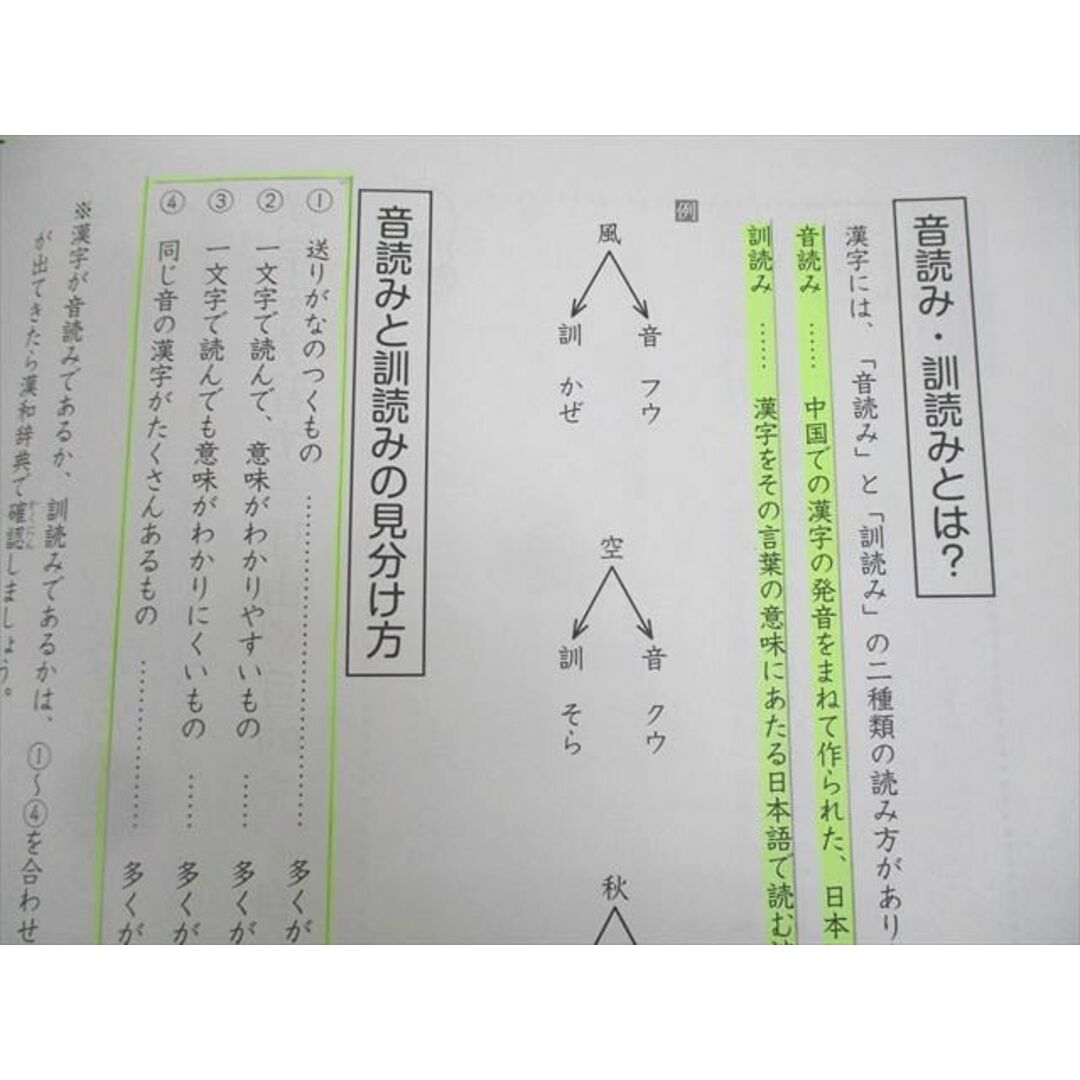 音読み・訓読みとは？
漢字には、「音読み」と「訓読み」の二種類の読み方があり
音読み …… 中国での漢字の発音をまねて作られた、日本
訓読み …… 漢字をその言葉の意味にあたる日本語で読む
例
風
音 フウ
訓 かぜ
空
音 クウ
訓 そら
秋
音読みと訓読みの見分け方
① 送りがなのつくもの …………………… 多くが
② 一文字で読んで、意味がわかりやすいもの …… 多くが
③ 一文字で読んでも意味がわかりにくいもの …… 多くが
④ 同じ音の漢字がたくさんあるもの ………… 多くが
※漢字が音読みであるか、訓読みであるかは、①〜④を合わせ
が出てきたら漢和辞典で確認しましょう。
かくにん